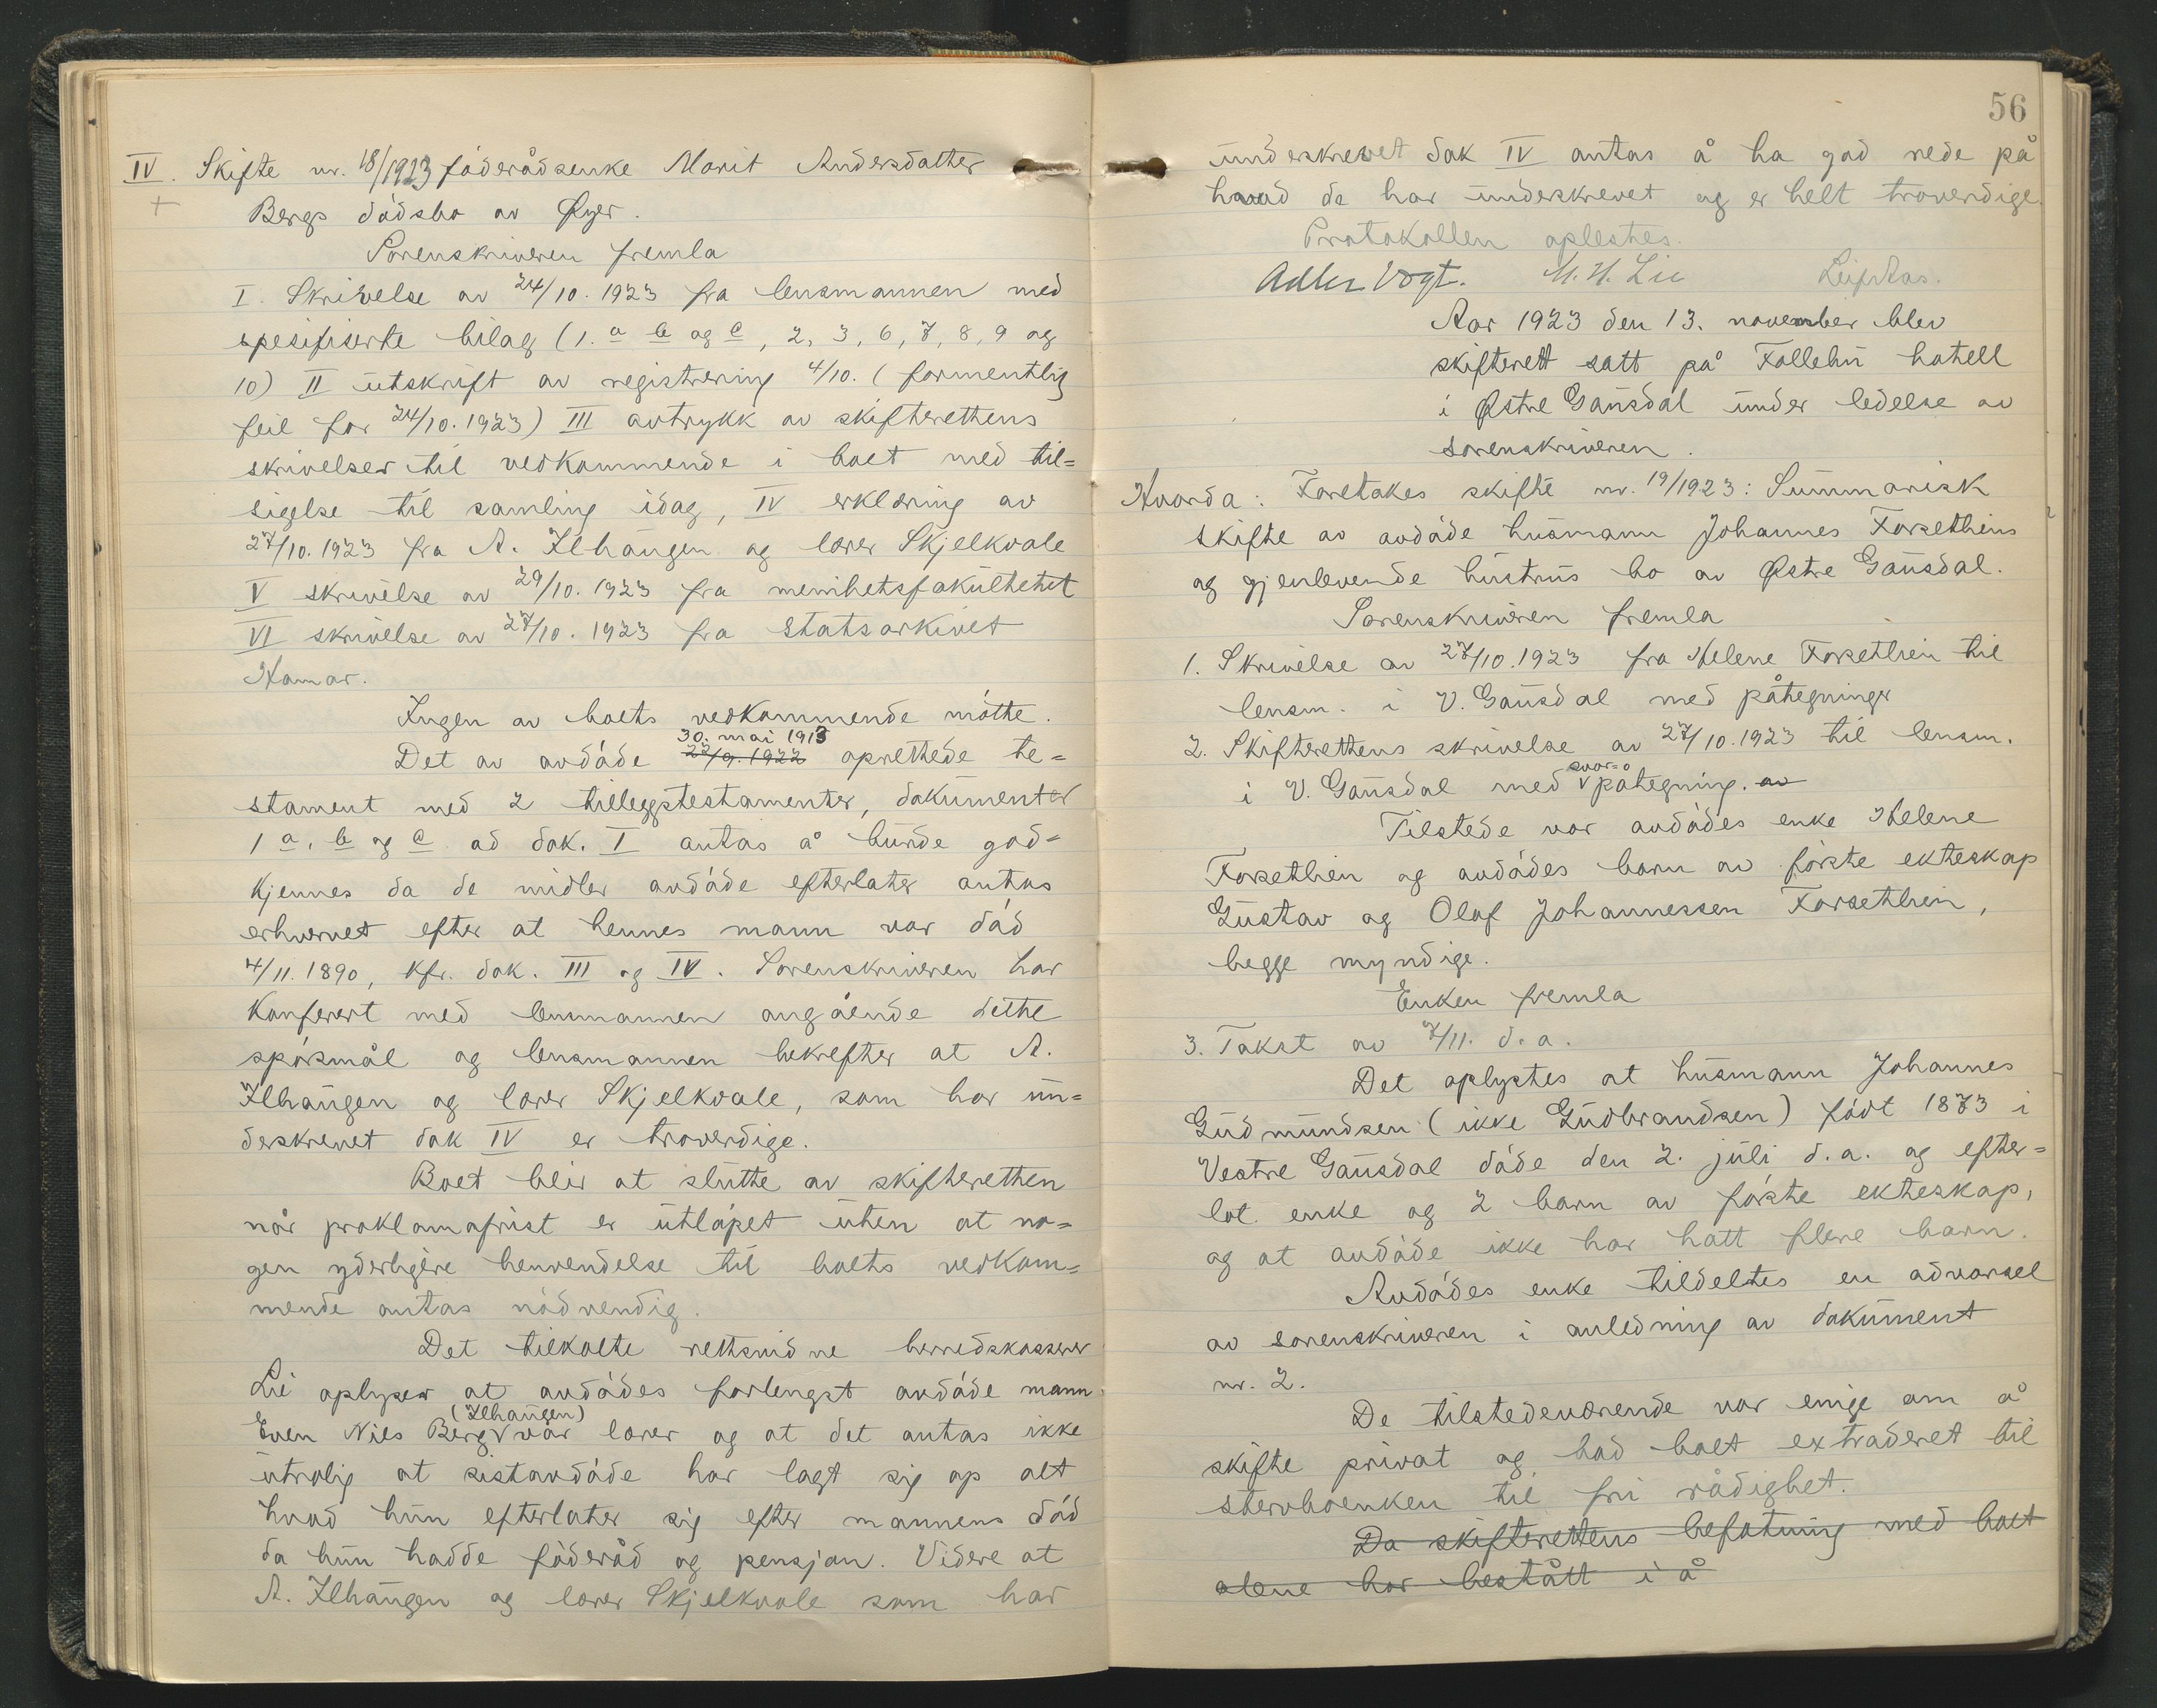 IV. Skifte nr. 18/1923 føderådsenke Marit Andersdatter
Bergs dødsbo av Øyer.
Sorenskriveren fremla
I. Skrivelse av 24/10. 1923 fra lensmannen med
spesifiserte bilag (1. a b og c, 2, 3, 6, 7, 8, 9 og
10) II utskrift av registrering 4/10. (formentlig
feil for 24/10. 1923) III avtrykk av skifterettens
skrivelser til vedkommende i boet med til=
sigelse til samling idag, IV erklæring av
27/10. 1923 fra A. Ilhaugen og lærer Skjelkvale
V skrivelse av 29/10. 1923 fra menihetsfakultetet
VI skrivelse av 27/10. 1923 fra Statsarkivet
Hamar.
Ingen av boets vedkommende møtte.
30. mai 1913
Det av avdøde 22/9. 1922 oprettede te=
stament med 2 tilleggstestamenter, dokumenter
1 a, b og c ad dok. I antas å burde god=
kjennes da de midler avdøde efterlater antas
erhvervet efter at hennes mann var død
4/11. 1890, kfr. dok. III og IV. Sorenskriveren har
konferert med lensmannen angående dette
spørsmål og lensmannen bekrefter at A.
Ilhaugen og lærer Skjelkvale, som har un=
derskrevet dok IV er troverdige.
Boet blir at slutte av skifteretten
når proklamafrist er utløpet uten at no=
gen yderligere henvendelse til boets vedkom=
mende antas nødvendig.
Det tilkalte rettsvidne herredskasserer
Lie oplyser at avdødes forlengst avdøde mann
(Ilhaugen)
Even Nils Berg var lærer og at det antas ikke
utrolig at sistavdøde har lagt sig op alt
hvad hun efterlater sig efter mannens død
da hun hadde føderåd og pensjon. Videre at
A. Ilhaugen og lærer Skjelkvale som har
56
underskrevet dok IV antas å ha god rede på
hvad de har underskrevet og er helt troverdige.
Protokollen oplestes.
Adler Vogt. M. H. Lie Leif Aas.
Aar 1923 den 13. november blev
skifterett satt på Follebu hotell
i Østre Gausdal under ledelse av
sorenskriveren.
Hvorda: Foretakes skifte nr. 19/1923: Summarisk
skifte av avdøde husmann Johannes Forsethiens
og gjenlevende hustrus bo av Østre Gausdal.
Sorenskriveren fremla
1. Skrivelse av 27/10. 1923 fra Helene Forsethien til
lensm. i V. Gausdal med påtegninger
2. Skifterettens skrivelse av 27/10. 1923 til lensm.
svar=
i V. Gausdal med påtegning. av
Tilstede var avdødes enke Helene
Forsethien og avdødes barn av første ekteskap
Gustav og Olaf Johannessen Forsethien,
begge myndige.
Enken fremla
3. Takst av 7/11. d. a.
Det oplystes at husmann Johannes
Gudmundsen (ikke Gudbrandsen) født 1873 i
Vestre Gausdal døde den 2. juli d. a. og efter=
lot enke og 2 barn av første ekteskap,
og at avdøde ikke har hatt flere barn.
Avdødes enke tildeltes en advarsel
av sorenskriveren i anledning av dokument
nr. 2.
De tilstedeværende var enige om å
skifte privat og bad boet extraderet til
stervboenken til fri rådighet.
Da skifterettens befatning med boet
alene har bestått i å